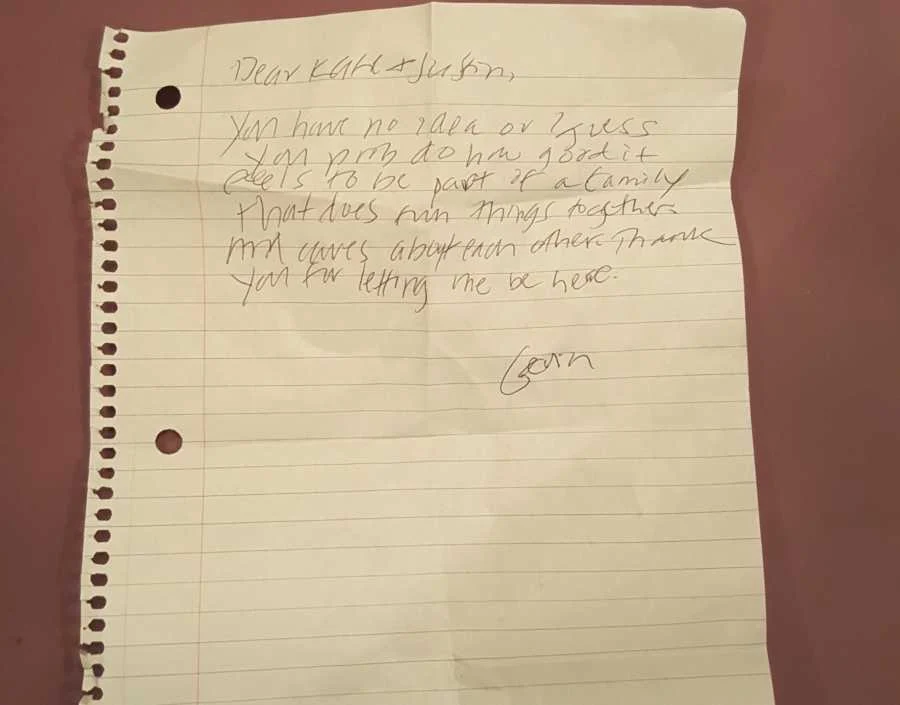 Dear Katie + Justin,
You have no idea or I guess
you prob do how good it
feels to be part of a family
that does fun things together
and cares about each other. Thank
you for letting me be here.
Gavin